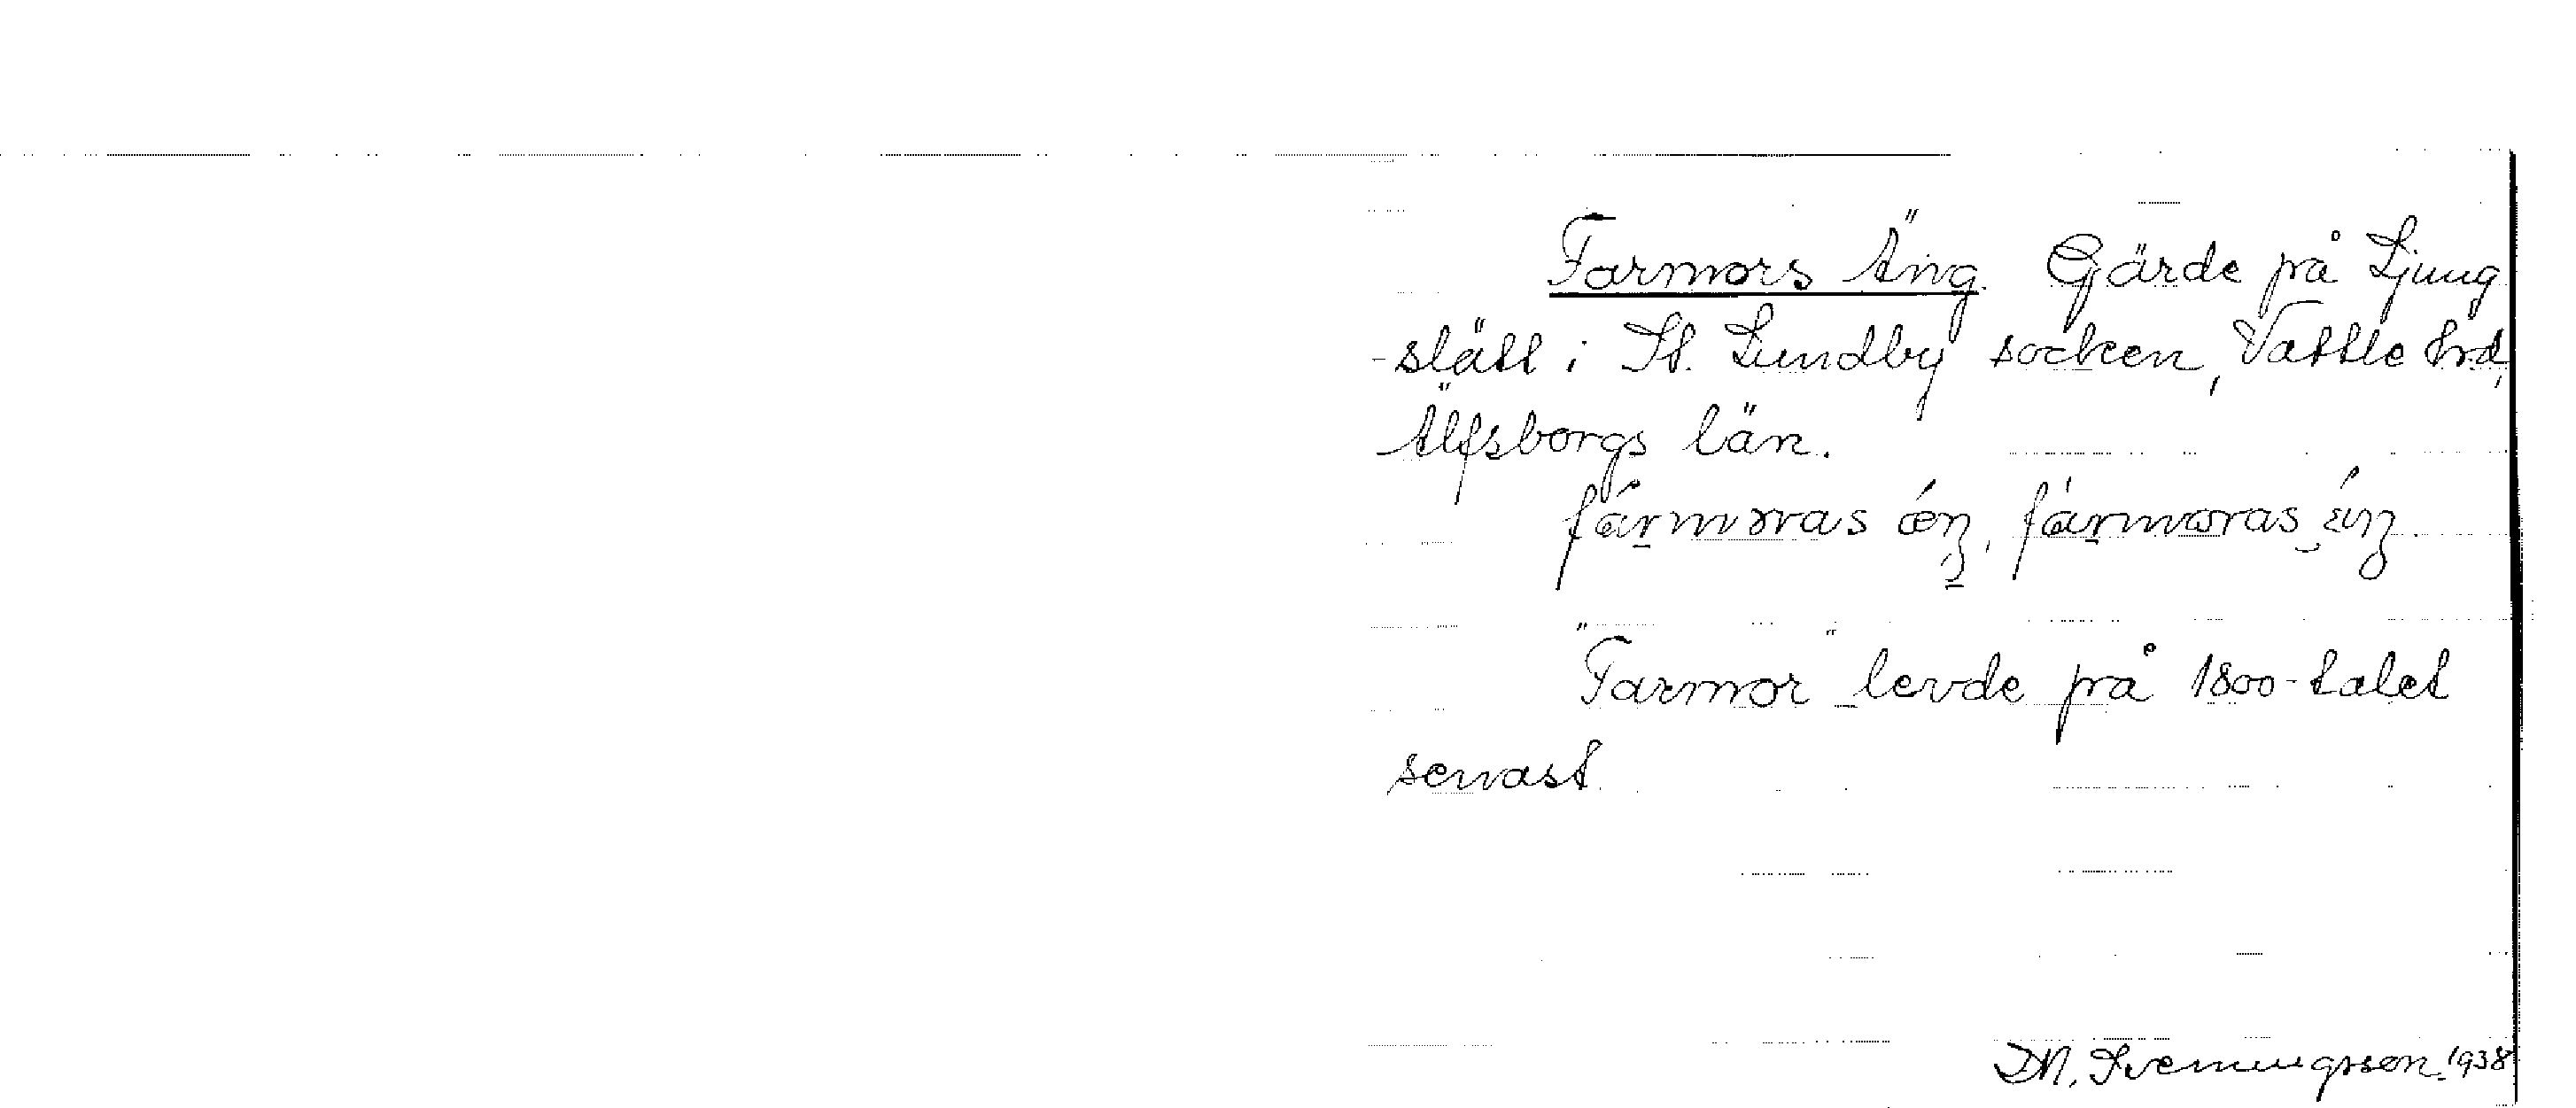 Farmors Äng. Gärde på Ljung
-slätt i St. Lundby socken, Vättle hrd,
Älfsborgs län.
fármoras
"Farmor" levde på 1800-talet
senast.
D.N. Svenningsson. 1938